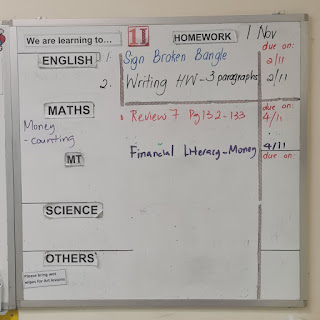 We are learning to... 1J HOMEWORK 1 Nov
due on:
ENGLISH 1. Sign Broken Bangle 2/11
2. Writing HW - 3 paragraphs 2/11
MATHS due on:
Money • Review 7 Pg 132-133 4/11
- counting
MT Financial Literacy - Money 4/11
due on:
SCIENCE
OTHERS
Please bring wet
wipes for Art lessons